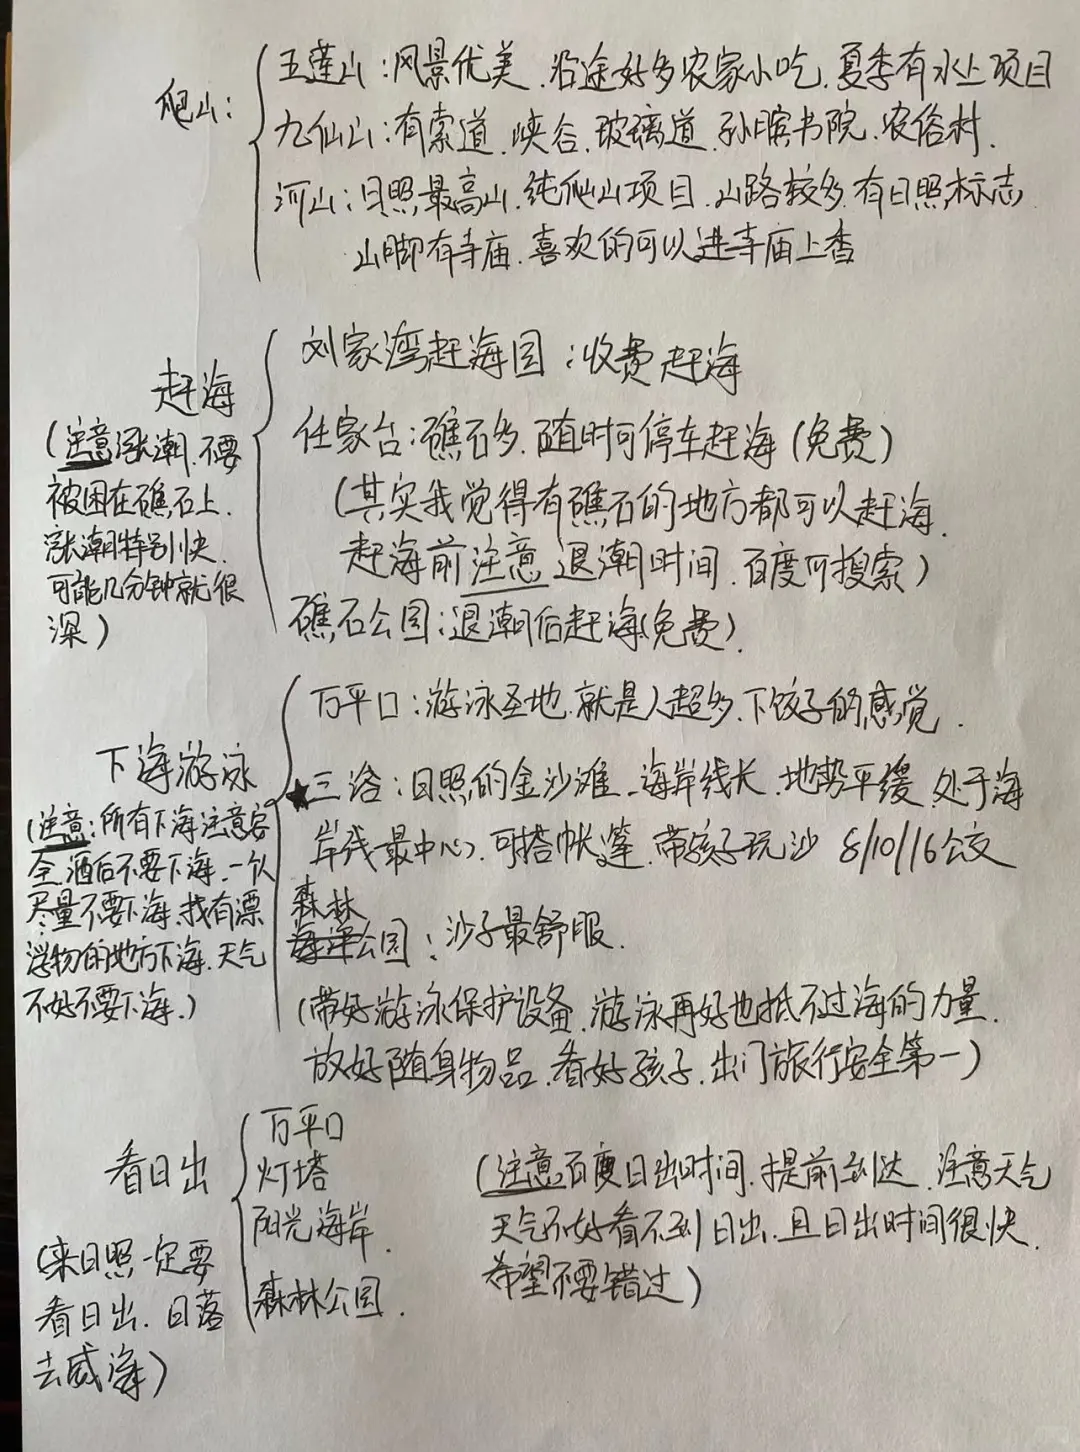 爬山：
五莲山：风景优美、沿途好多农家小吃、夏季有水上项目
九仙山：有索道、峡谷、玻璃道、孙膑书院、农俗村.
河山：日照最高山、纯爬山项目、山路较多、有日照标志
山脚有寺庙、喜欢的可以进寺庙上香
赶海
(注意涨潮、不要
被困在礁石上、
涨潮特别快、
可能几分钟就很
深)
刘家湾赶海园：收费赶海
任家台：礁石多、随时可停车赶海(免费)
(其实我觉得有礁石的地方都可以赶海、
赶海前注意退潮时间、百度可搜索)
礁石公园：退潮后赶海(免费).
下海游泳
(注意：所有下海注意安
全、酒后不要下海、一个人
尽量不要下海、找有漂
浮物的地方下海、天气
不好不要下海.)
万平口：游泳圣地、就是人超多、下饺子的感觉.
★三洛：日照的金沙滩、海岸线长、地势平缓、处于海
岸线最中心、可搭帐篷、带孩子玩沙 8/10/16公交
森林
海洋公园：沙子最舒服.
(带好游泳保护设备、游泳再好也抵不过海的力量、
放好随身物品、看好孩子、出门旅行安全第一)
看日出
(来日照一定要
看日出、日落
去威海)
万平口
灯塔
阳光海岸.
森林公园.
(注意百度日出时间、提前到达、注意天气
天气不好看不到日出、且日出时间很快、
希望不要错过)